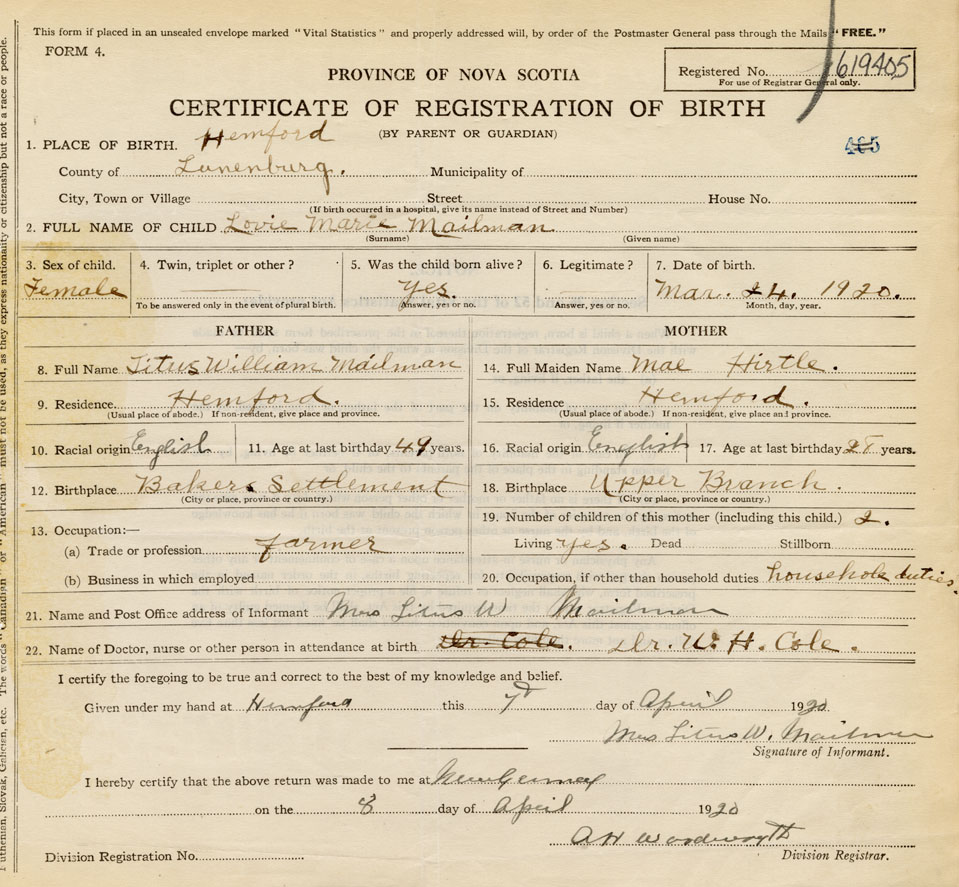 This form if placed in an unsealed envelope marked "Vital Statistics" and properly addressed will, by order of the Postmaster General pass through the Mails "FREE."
FORM 4.
PROVINCE OF NOVA SCOTIA
Registered No. 619405
For use of Registrar General only.
CERTIFICATE OF REGISTRATION OF BIRTH
(BY PARENT OR GUARDIAN)
465
1. PLACE OF BIRTH. Hemford
County of Lunenburg. Municipality of
City, Town or Village Street House No.
(If birth occurred in a hospital, give its name instead of Street and Number)
2. FULL NAME OF CHILD Lovie Marie Mailman
(Surname) (Given name)
3. Sex of child. 4. Twin, triplet or other? 5. Was the child born alive? 6. Legitimate? 7. Date of birth.
Female Yes. Mar. 24. 1920.
To be answered only in the event of plural birth. Answer, yes or no. Answer, yes or no. Month, day, year.
FATHER MOTHER
8. Full Name Titus William Mailman 14. Full Maiden Name Mae Hirtle.
9. Residence. Hemford. 15. Residence Hemford.
(Usual place of abode.) If non-resident, give place and province. (Usual place of abode.) If non-resident, give place and province.
10. Racial origin English 11. Age at last birthday 49 years. 16. Racial origin English 17. Age at last birthday 28 years.
12. Birthplace Bakers Settlement 18. Birthplace Upper Branch.
(City or place, province or country.) (City or place, province or country.)
13. Occupation:— 19. Number of children of this mother (including this child.) 2.
(a) Trade or profession farmer Living yes. Dead Stillborn
(b) Business in which employed 20. Occupation, if other than household duties household duties.
21. Name and Post Office address of Informant Mrs Titus W Mailman
22. Name of Doctor, nurse or other person in attendance at birth Dr. Cole. Dr. W. H. Cole.
I certify the foregoing to be true and correct to the best of my knowledge and belief.
Given under my hand at Hemford this 7 day of April 1920.
Mrs Titus W. Mailman
Signature of Informant.
I hereby certify that the above return was made to me at New Germany
on the 8 day of April 1920
Division Registration No. Division Registrar.
must not be used, as they express nationality or citizenship but not a race or people.